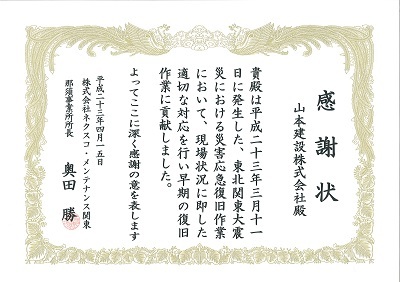 感謝状
山本建設株式会社殿
貴殿は平成二十三年三月十一
日に発生した、東北関東大震
災における災害応急復旧作業
において、現場状況に即した
適切な対応を行い早期の復旧
作業に貢献しました。
よってここに深く感謝の意を表します
平成二十三年四月一五日
株式会社ネクスコ・メンテナンス関東
那須事業所所長
奥田　勝